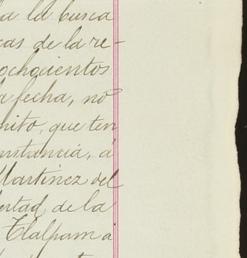 a la busca
cas de la re-
ochocientos
a fecha, no
nito, que ten
instancia, a
Martinez del
ertad, de la
Tlalpam a